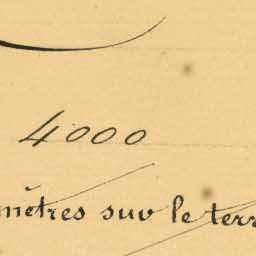 4000
mètres sur le terr